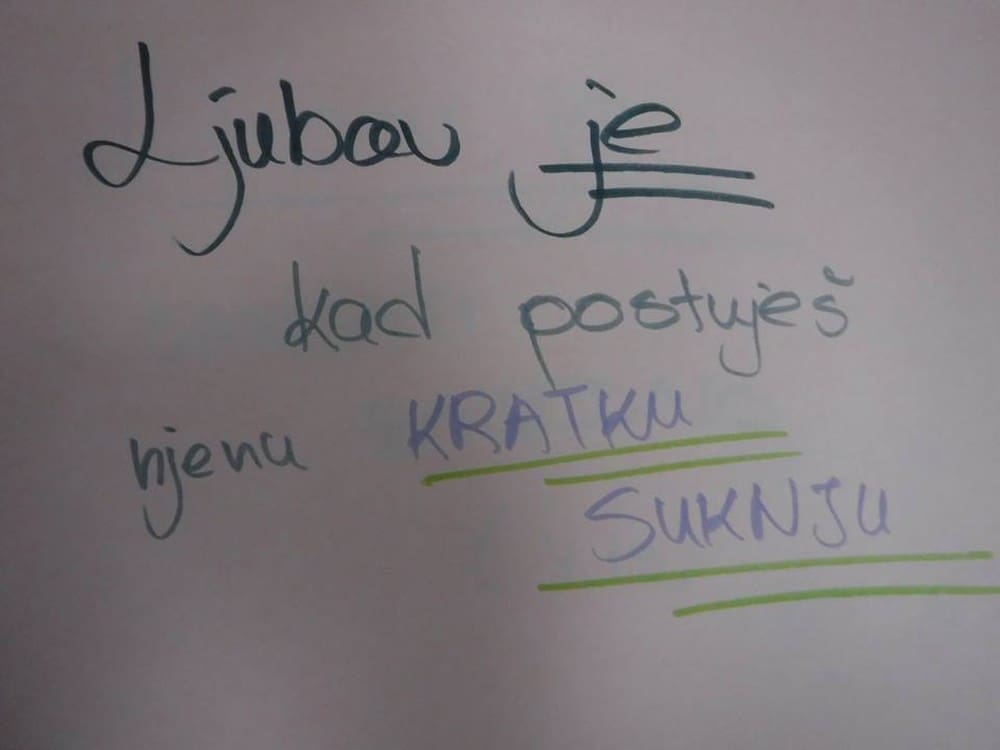 Ljubav je
kad postuješ
njenu KRATKU
SUKNJU